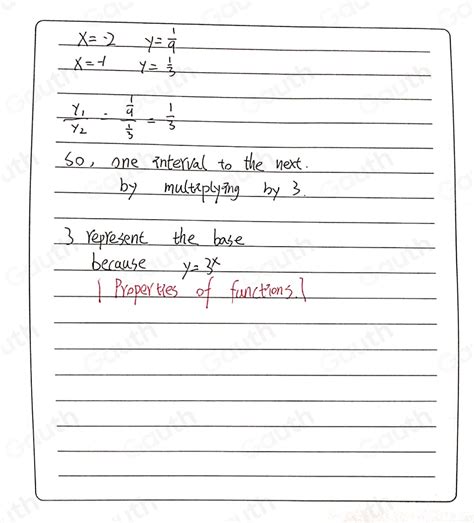 x=-2 y=1/9
x=-1 y=1/3
y₁/y₂ = (1/9)/(1/3) = 1/3
So, one interval to the next.
by multiplying by 3.
3 represent the base
because y=3^x
| Properties of functions. |
Gauth